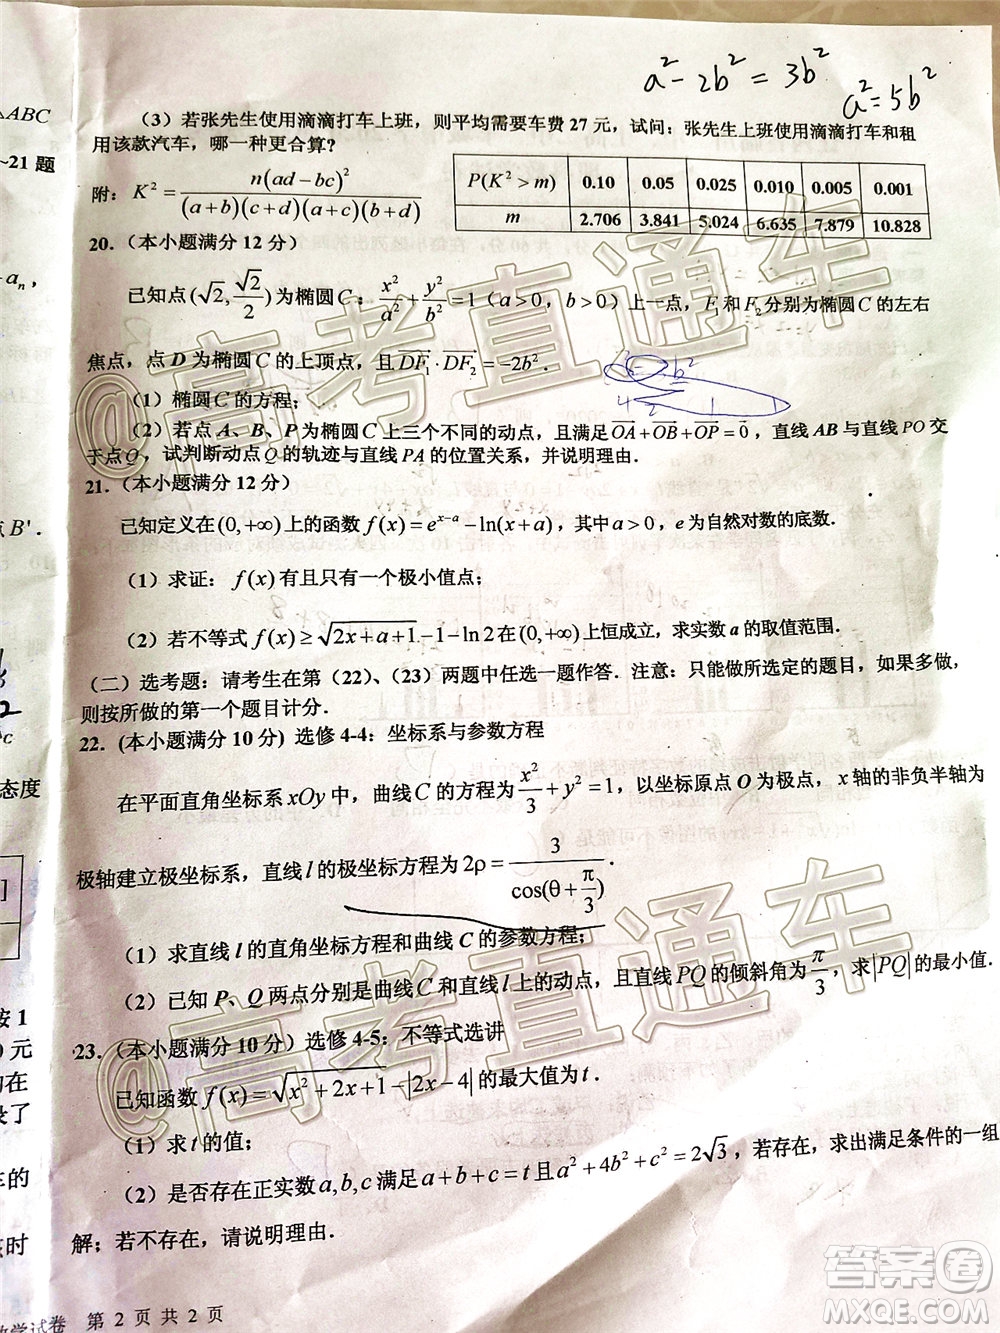 a²-2b²=3b²
a²=5b²
△ABC
（3）若张先生使用滴滴打车上班，则平均需要车费 27 元，试问：张先生上班使用滴滴打车和租
用该款汽车，哪一种更合算？
~21 题
附：K² = n(ad-bc)² / (a+b)(c+d)(a+c)(b+d)
P(K²>m) 0.10 0.05 0.025 0.010 0.005 0.001
m 2.706 3.841 5.024 6.635 7.879 10.828
20.（本小题满分 12 分）
aₙ，
已知点(√2, √2/2)为椭圆 C：x²/a² + y²/b² = 1（a>0，b>0）上一点，F₁和F₂分别为椭圆 C 的左右
焦点，点 D 为椭圆 C 的上顶点，且DF₁·DF₂=-2b².
（1）椭圆 C 的方程；
（2）若点 A、B、P 为椭圆 C 上三个不同的动点，且满足OA+OB+OP=0，直线 AB 与直线 PO 交
于点Q，试判断动点Q的轨迹与直线 PA 的位置关系，并说明理由.
21.（本小题满分 12 分）
点 B'.
已知定义在(0,+∞)上的函数 f(x)=e^(x-a)-ln(x+a)，其中a>0，e 为自然对数的底数.
（1）求证：f(x)有且只有一个极小值点；
（2）若不等式 f(x)≥√(2x+a+1)-1-ln2在(0,+∞)上恒成立，求实数 a 的取值范围.
（二）选考题：请考生在第（22）、（23）两题中任选一题作答．注意：只能做所选定的题目，如果多做，
则按所做的第一个题目计分.
22．(本小题满分 10 分) 选修 4-4：坐标系与参数方程
态度
在平面直角坐标系 xOy 中，曲线 C 的方程为x²/3+y²=1，以坐标原点 O 为极点，x 轴的非负半轴为
极轴建立极坐标系，直线 l 的极坐标方程为2ρ=3/cos(θ+π/3).
（1）求直线 l 的直角坐标方程和曲线 C 的参数方程；
（2）已知 P、Q 两点分别是曲线 C 和直线 l 上的动点，且直线 PQ 的倾斜角为π/3，求|PQ|的最小值.
安 1
23.（本小题满分 10 分）选修 4-5：不等式选讲
元
已知函数 f(x)=√(x²+2x+1)-|2x-4|的最大值为 t.
的在
录了
（1）求 t 的值；
车的
（2）是否存在正实数a,b,c 满足a+b+c=t且a²+4b²+c²=2√3，若存在，求出满足条件的一组
解；若不存在，请说明理由.
亥时
数学试卷 第 2 页 共 2 页
@高考直通车
@高考直通车
答案圈
MXQE.COM